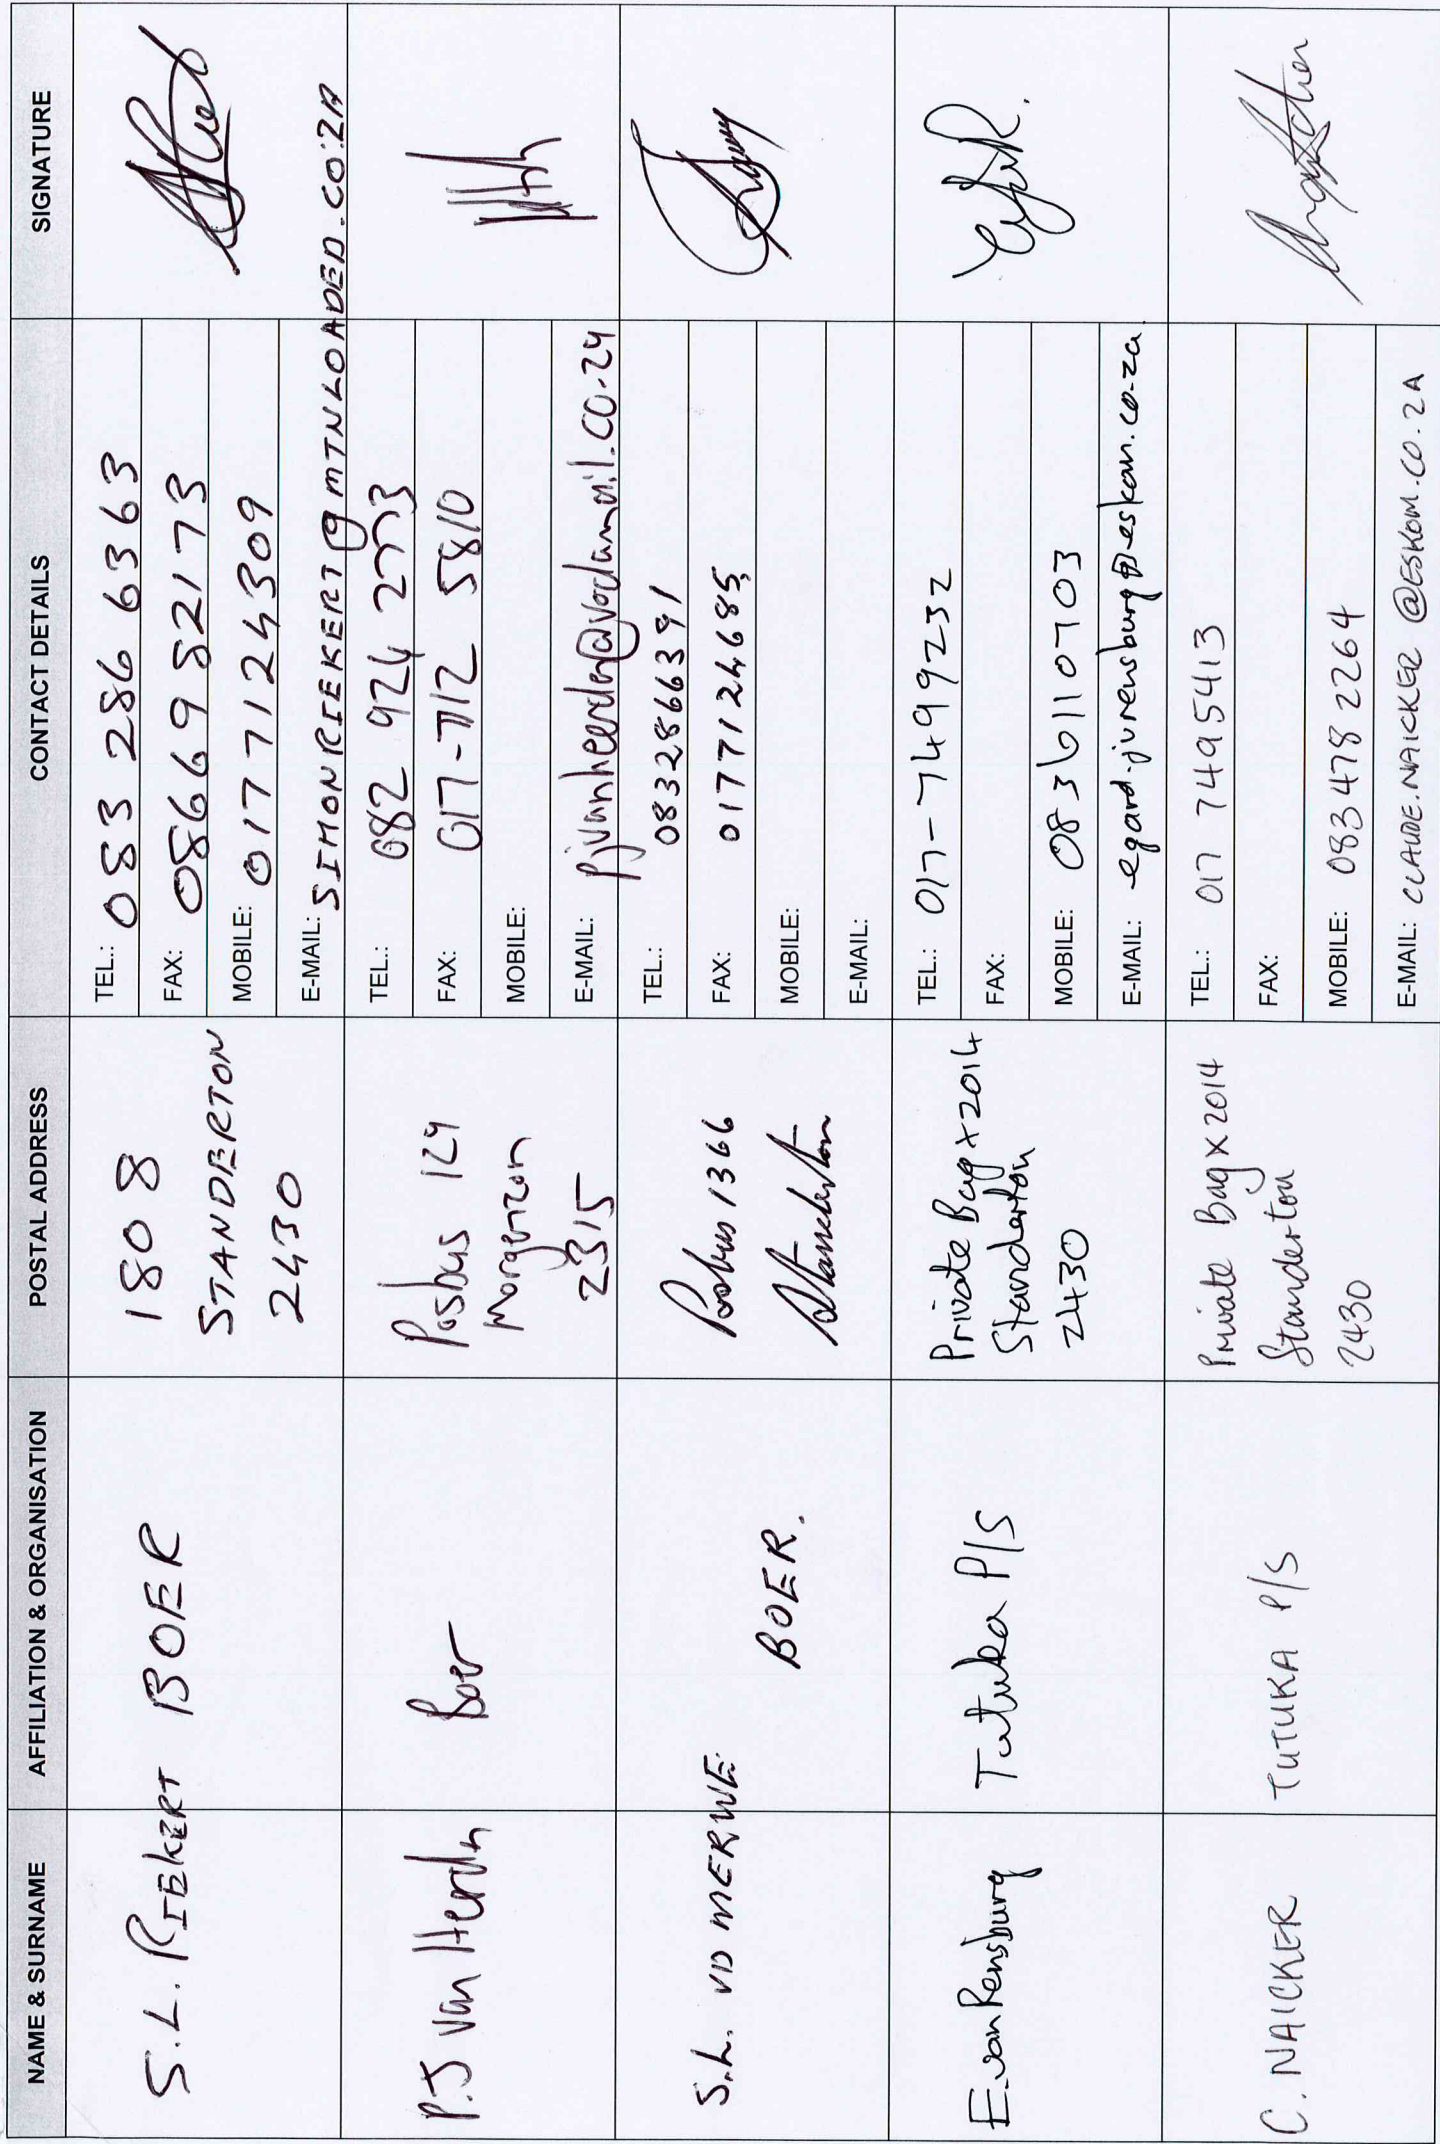 NAME & SURNAME AFFILIATION & ORGANISATION POSTAL ADDRESS CONTACT DETAILS SIGNATURE
S.L. RIEKERT BOER
1808
STANDERTON
2430
TEL.: 083 286 6363
FAX: 0866982173
MOBILE: 0177124309
E-MAIL: SIMONRIEKERT@MTNLOADED.CO.ZA
P.J van Herdn Boer
Posbus 129
Morgenzon
2315
TEL.: 082 924 2773
FAX: 017-712 5810
MOBILE:
E-MAIL: pjvanheerden@vodamail.co.za
S.L. VD MERWE BOER.
Posbus 1366
Standerton
TEL.: 0832866391
FAX: 0177124685
MOBILE:
E-MAIL:
E van Rensburg Tutuka P/S
Private Bag x2014
Standerton
2430
TEL.: 017-7499232
FAX:
MOBILE: 0836110703
E-MAIL: egard.jvrensburg@eskom.co.za
C. NAICKER TUTUKA P/S
Private Bag x 2014
Standerton
2430
TEL.: 017 7495413
FAX:
MOBILE: 083 478 2264
E-MAIL: CLAUDE.NAICKER@ESKOM.CO.ZA